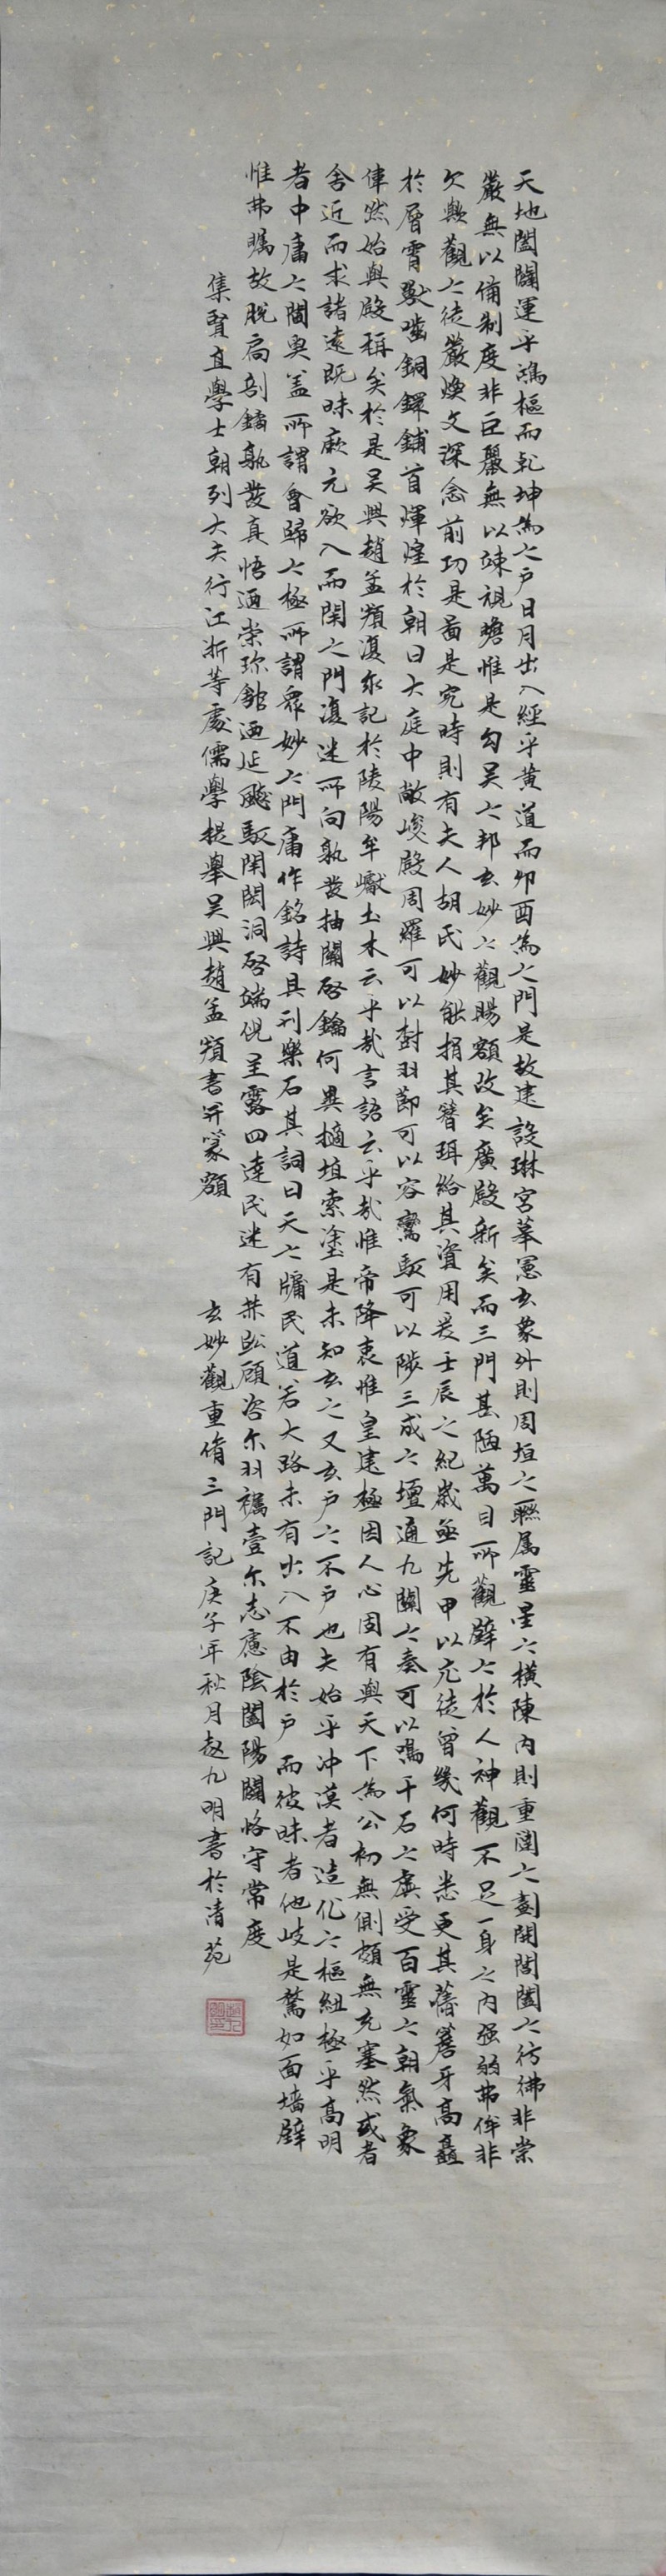 天地闔闢運乎鴻樞而乾坤為之戶日月出入經乎黃道而卯酉為之門是故建設琳宮摹憲玄象外則周垣之聯属靈星之橫陳內則重闉之劃開閶闔之彷彿非崇
嚴無以備制度非巨麗無以竦視瞻惟是勾吴之邦玄妙之觀賜額改矣廣殿新矣而三門甚陋萬目所觀辟之於人神觀不足一身之內强弱弗侔非
欠歟觀之徒嚴煥文深念前功是啚是究時則有夫人胡氏妙能捐其簪珥給其資用爰壬辰之紀歲亟先甲以庀徒曾幾何時悉更其舊簷牙高矗
於層霄獸嚙銅鐶鋪首輝煌於朝日大庭中敞峻殿周羅可以樹羽節可以容鸞馭可以陟三成之壇通九關之奏可以鳴千石之虡受百靈之朝氣象
偉然始與殿稱矣於是吴興趙孟頫復求記於陵陽牟巘土木云乎㢤言語云乎㢤惟帝降衷惟皇建極因人心固有與天下為公初無側頗無充塞然或者
舍近而求諸遠既昧厥元欲入而閉之門復迷所向孰發抽關啓鑰何異擿埴索塗是未知玄之又玄戶之不戶也夫始乎冲漠者造化之樞紐極乎高明
者中庸之閫奧盖所謂會歸之極所謂衆妙之門庸作銘詩具刊樂石其詞曰天之牖民道若大路未有出入不由於戶而彼昧者他岐是騖如面墻壁
惟弗矚故脫扃剖鐍孰發真悟迺崇珎館迺延飈馭閈閎洞啓端倪呈露四達民迷有赫臨顧咨尔羽襦壹尔志慮陰闔陽闢恪守常度
集賢直學士朝列大夫行江浙等處儒學提舉吴興趙孟頫書并篆額 玄妙觀重脩三門記庚子年秋月赵九明書於清苑